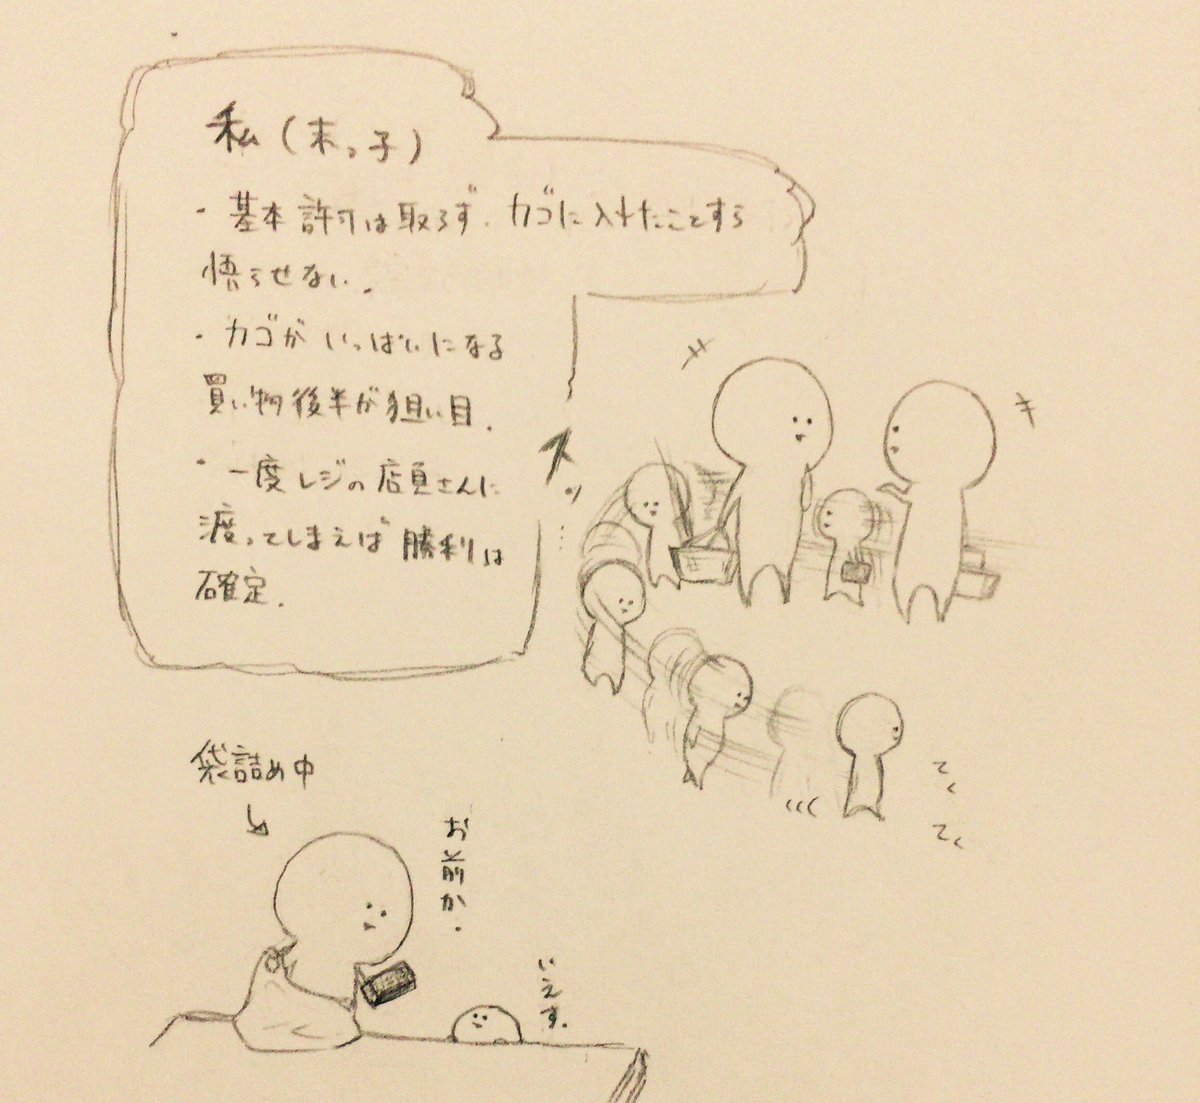 私(末っ子)
・基本許可は取らず、カゴに入れたことすら
悟らせない。
・カゴがいっぱいになる
買い物後半が狙い目。
・一度レジの店員さんに
渡ってしまえば勝利は
確定。
スッ…
てく
てく
袋詰め中
お前か。
いえす。